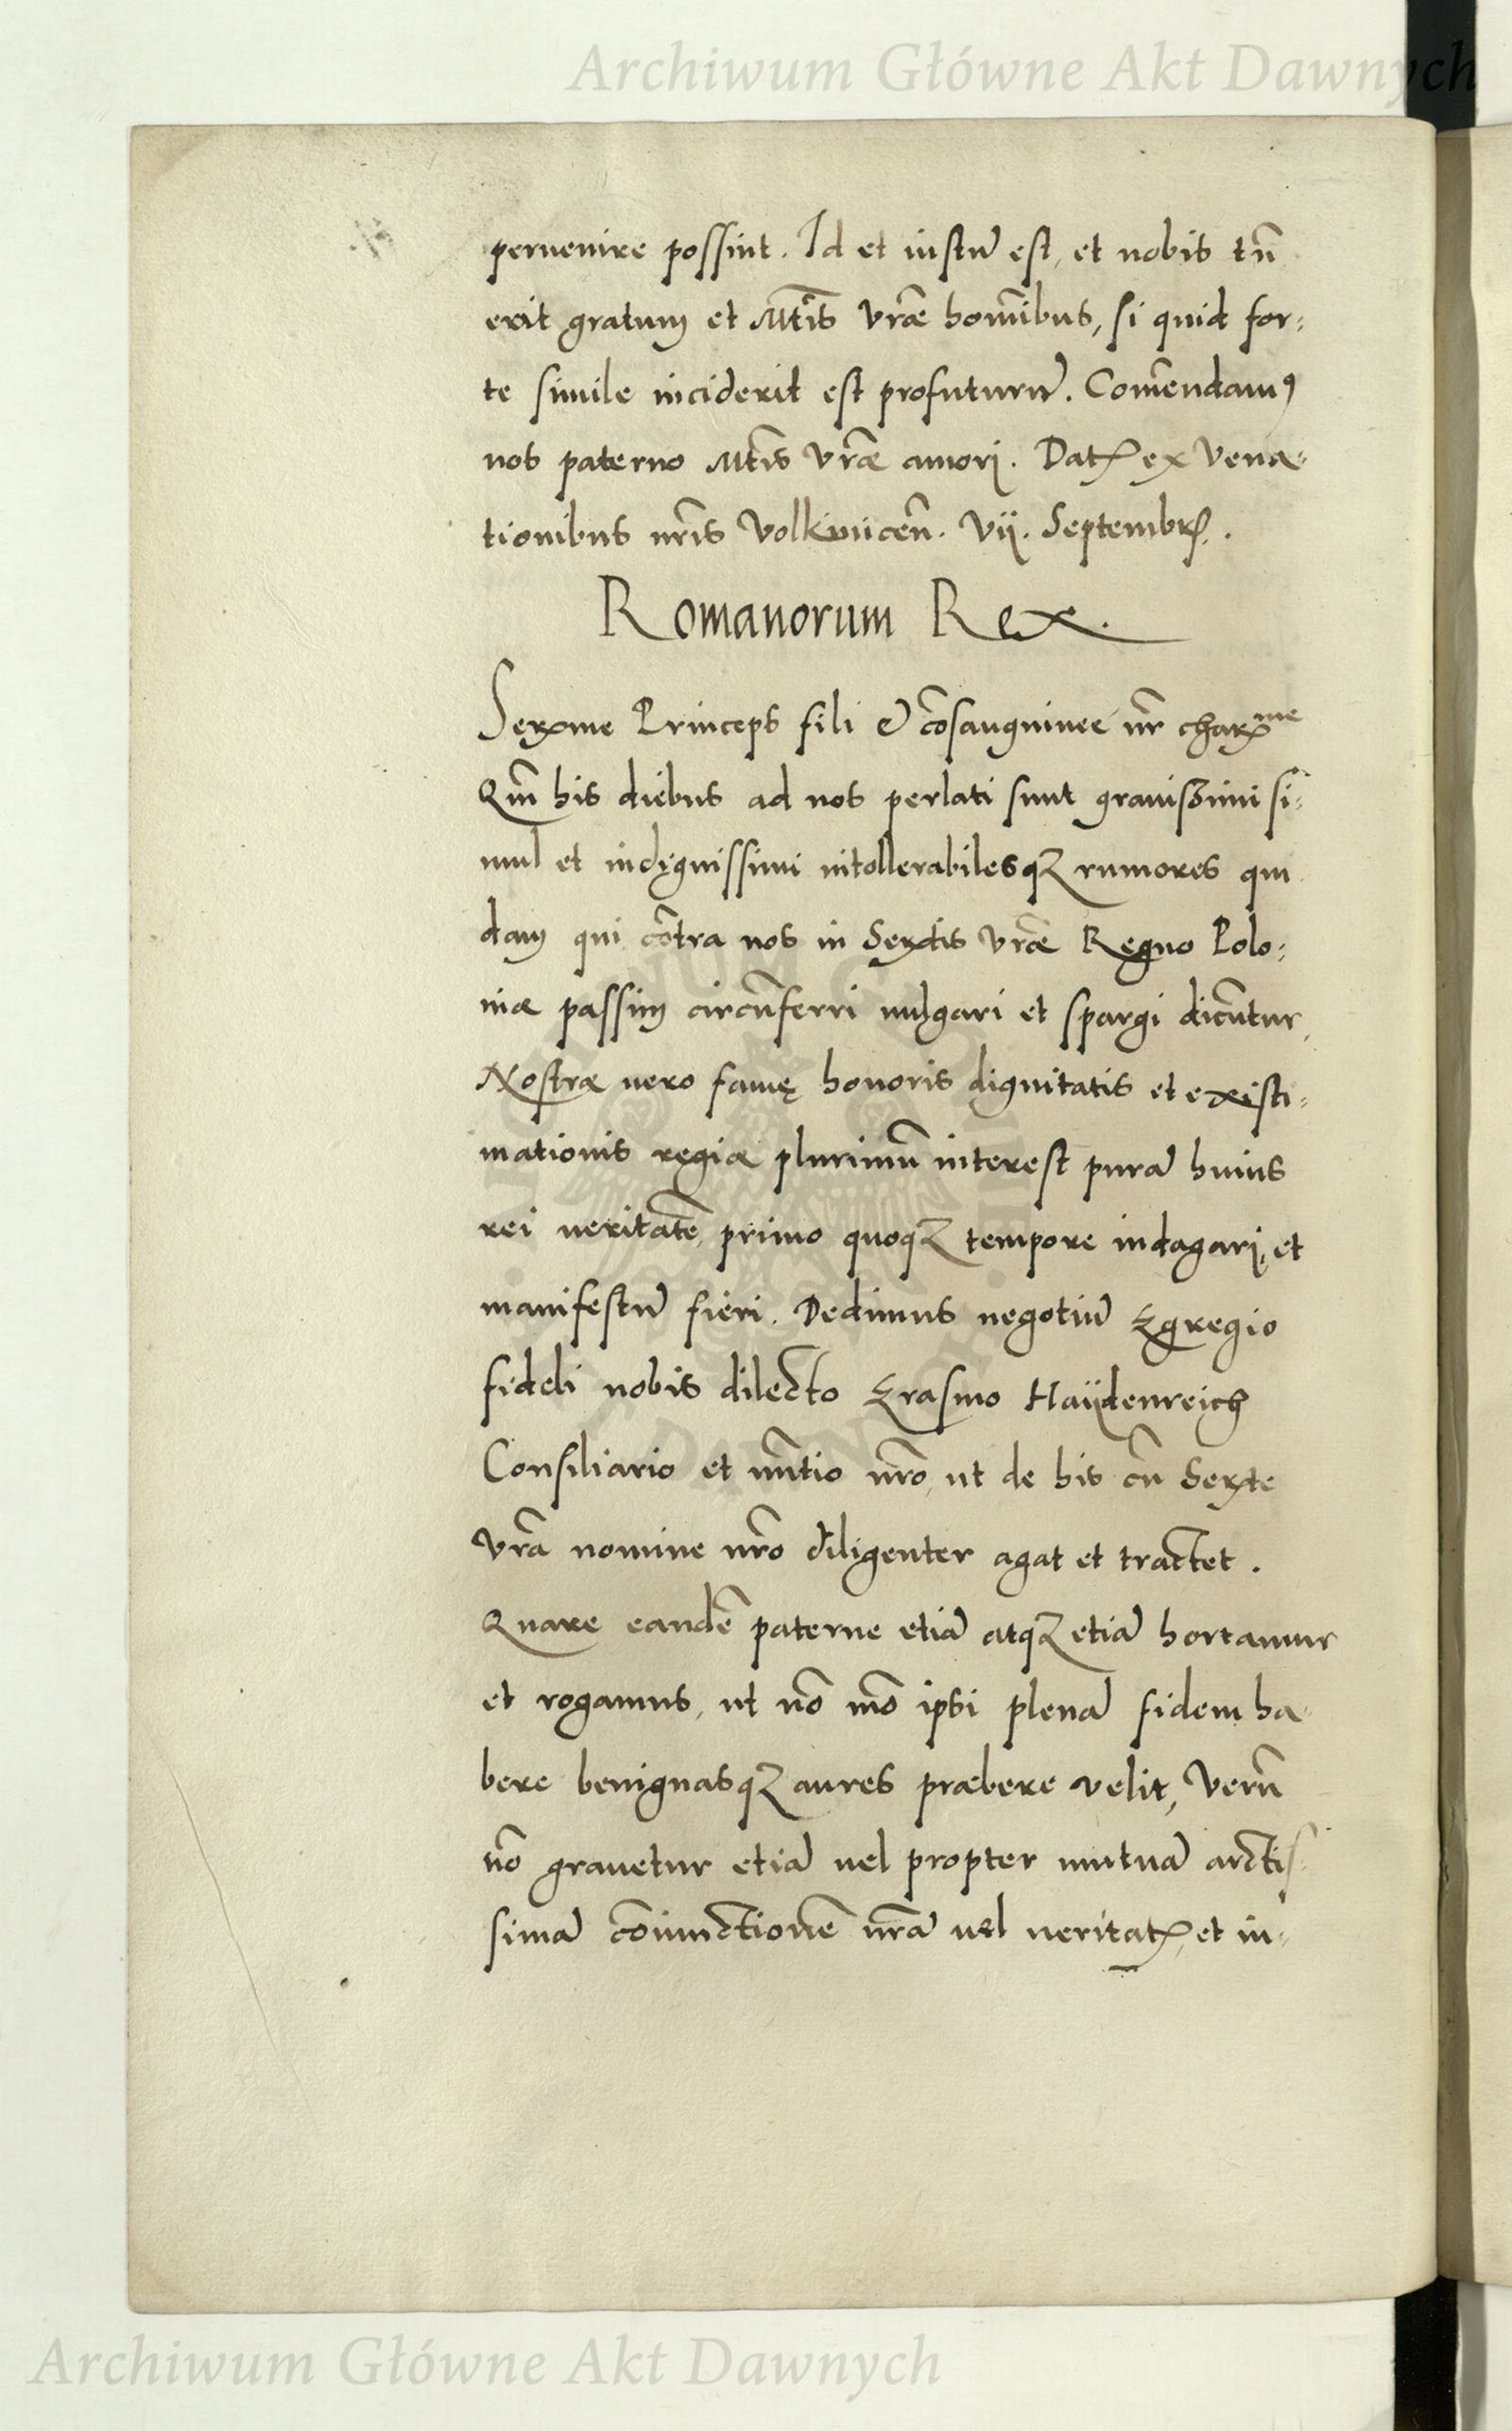 Archiwum Główne Akt Dawnych
peruenire possint. Id et iustū est, et nobis tū
erit gratum et Mtis vrae homībus, si quid for:
te simile inciderit est profuturū. Comēndamꝰ
nos paterno Mtis vrae amori. Datꝭ ex Vena-
tionibus nris Volkiniicen̄. Vij. Septembrꝭ.
Romanorum Rex.
Serxme Princeps fili & cōsanguinee nr charxme
Qm̄ his diebus ad nos perlati sunt grauissimi si:
mul et indignissimi intollerabilesqꝫ rumores qui
dam qui cōtra nos in Serxtis vrae Regno Polo:
niae passim circūferri uulgari et spargi dicūtur,
Nostrae uero famę honoris dignitatis et existi:
mationis regiae plurimū interest purā huius
rei ueritatē, primo quoqꝫ tempore indagari, et
manifestū fieri. Dedimus negotiū Egregio
fideli nobis dilecto Erasmo Haÿdenreich
Consiliario et nūtio nr̄o, ut de his cū Serxte
vrā nomine nr̄o diligenter agat et tractet.
Quare eandē paterne etiā atqꝫ etiā hortamur
et rogamus, ut nō mō ipsi plenā fidem ha-
bere benignasqꝫ aures praebere velit, Verū
nō grauetur etiā uel propter mutuā arctis:
simā cōiunctionē nrā uel ueritatꝭ, et in-
Archiwum Główne Akt Dawnych